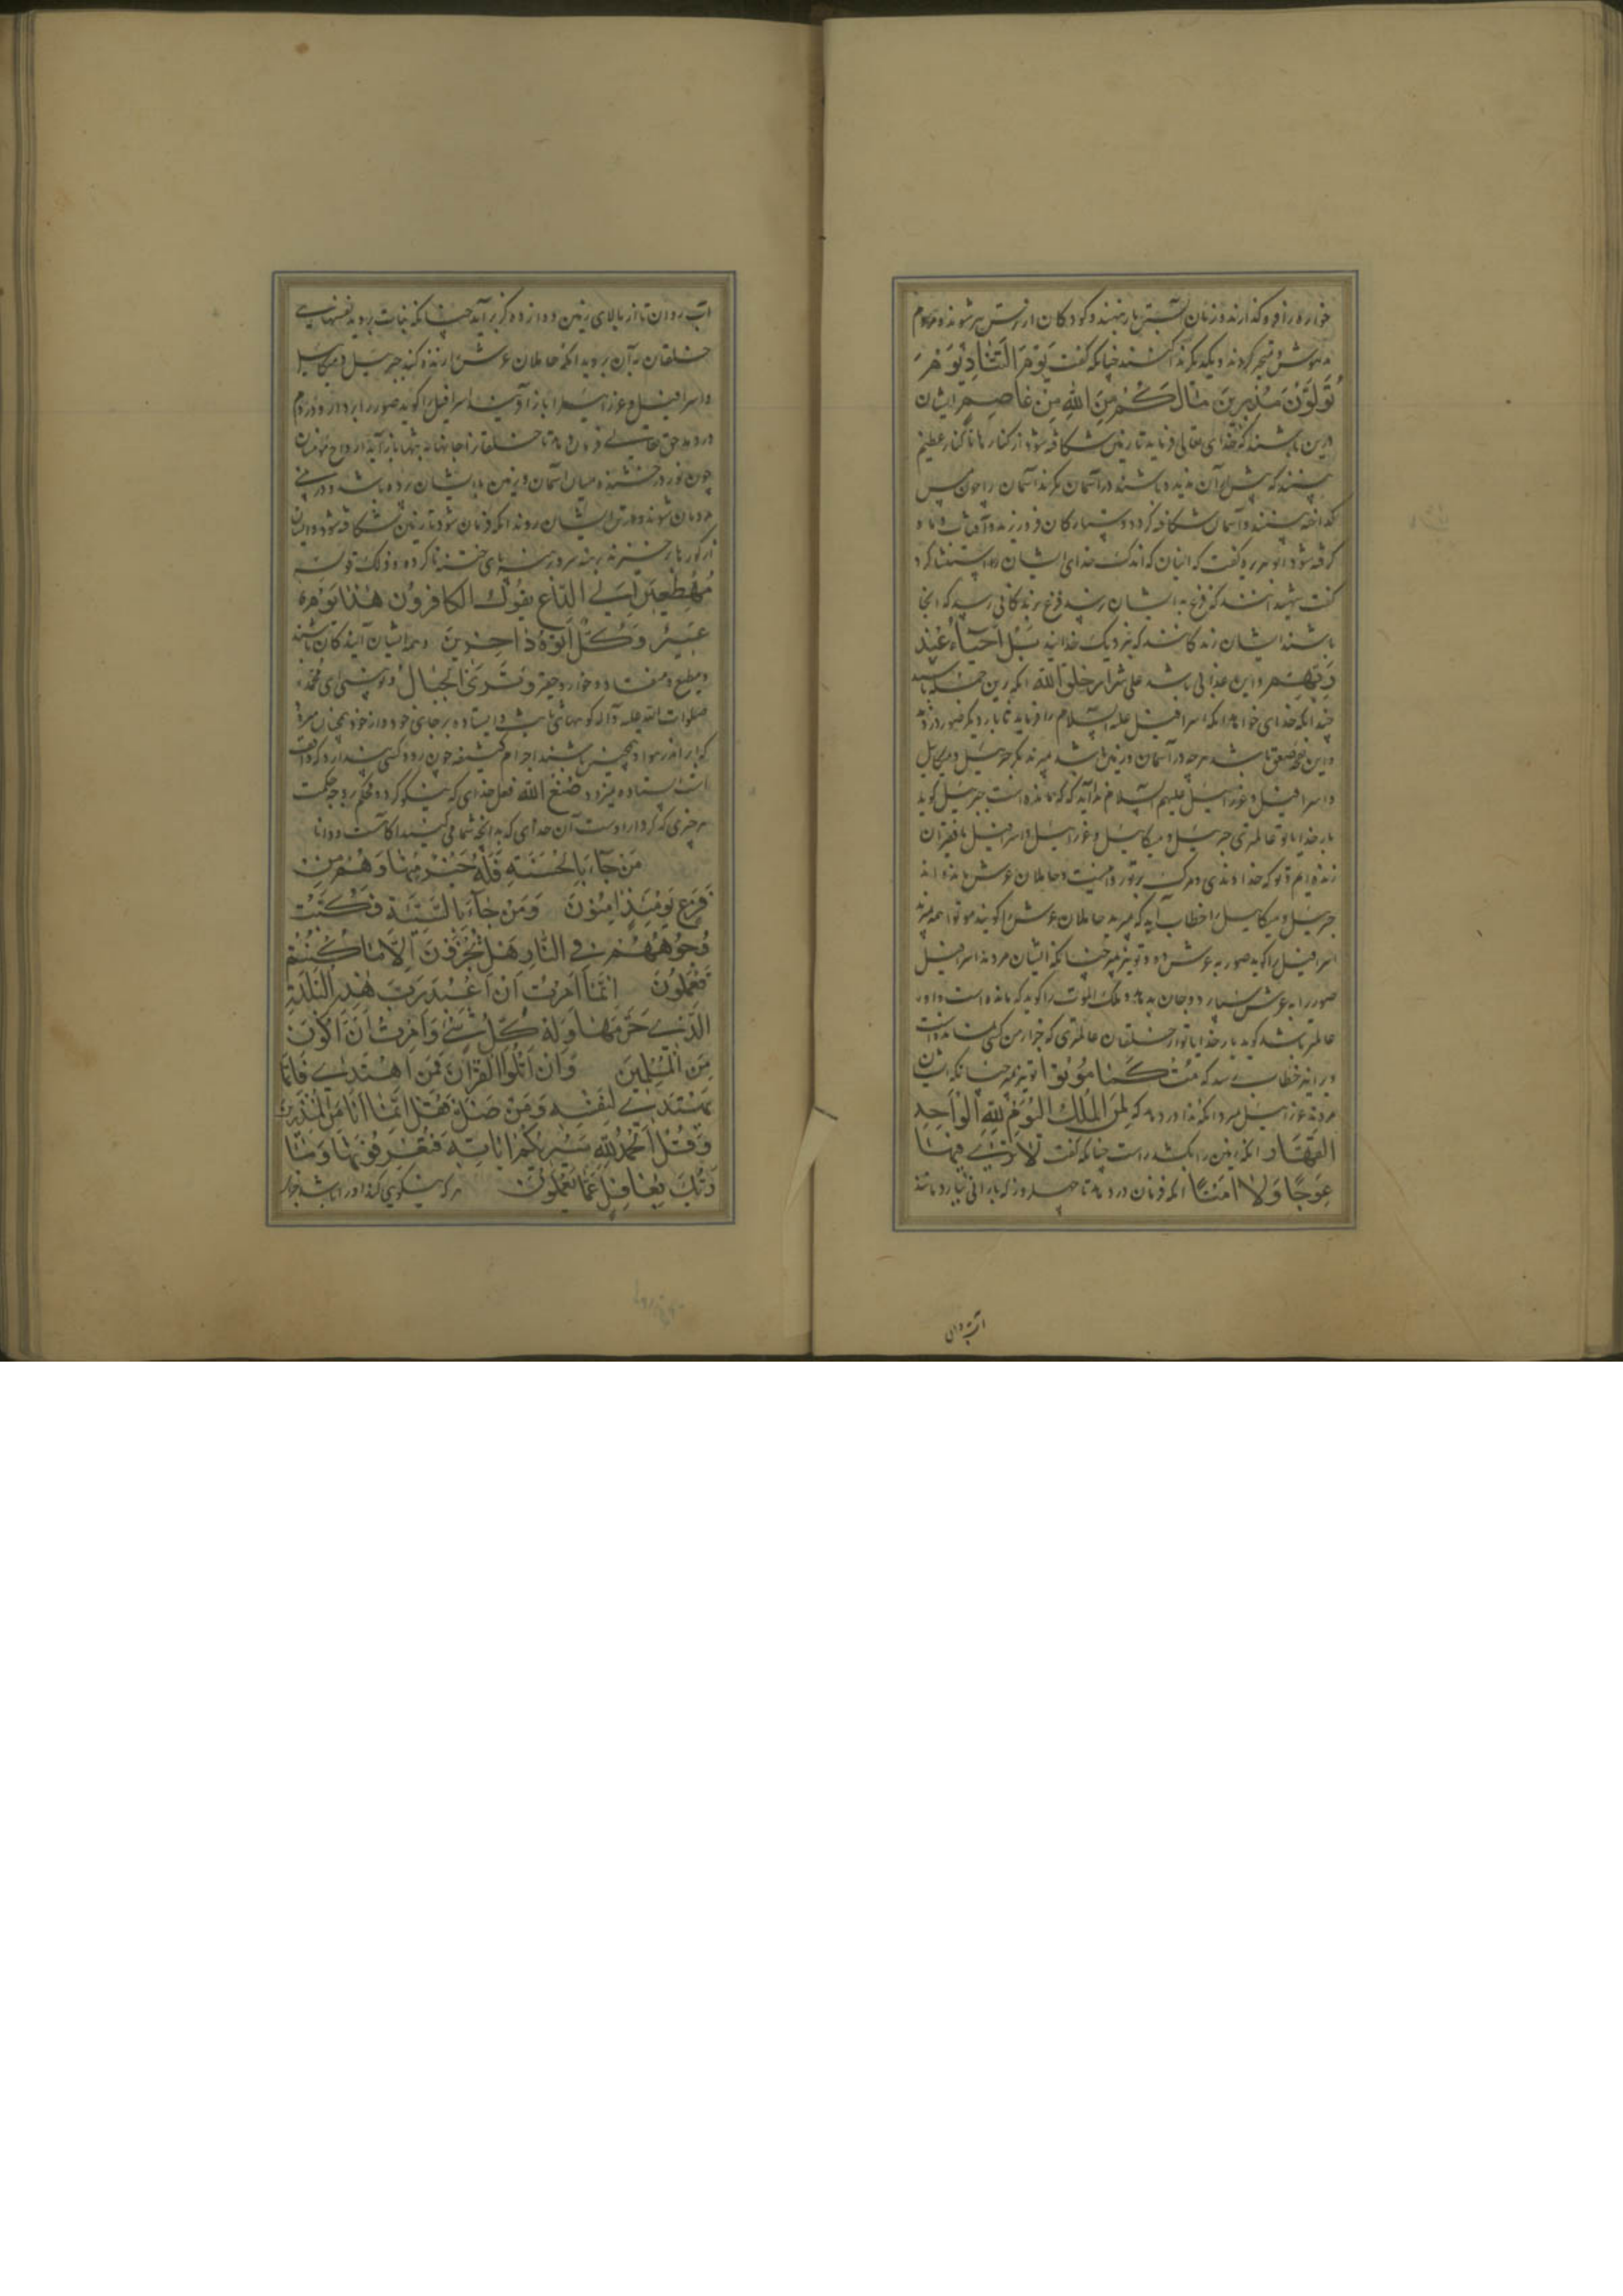 خواره را فرو گذارند و زنان آبستن بار بنهند و کودکان از ترس پیر شوند و مردم
مدهوش و متحیر گردند و یکدیگر ندا کنند چنانکه گفت یَوْمَ التَّنَادِ یَوْمَ
تُوَلُّوْنَ مُدْبِرِینَ مَا لَکُمْ مِنَ اللهِ مِنْ عَاصِمٍ ایشان
درین باشند که خدای تعالی فرماید تا زمین شکافته شود از کنار تا کنار عظیم
بینند که پیش از آن ندیده باشند در آسمان نگرند آسمان را چون مس
گداخته بینند و آسمان شکافته گردد و ستارگان فرو ریزند و آفتاب و ماه
گرفته شود ابو هریره گفت که اینان که اند که خدای ایشان را استثنا کرد
گفت شهیدانند که فزع به ایشان رسد فزع بزندگانی رسد که اینجا
باشند ایشان زندگانند که بنزدیک خدایند بَلْ اَحْیَاءٌ عِنْدَ
رَبِّهِمْ و این عذابی باشد علی شرار خلق الله آنکه زین جمله باشند
چندانکه خدای خواهد آنکه اسرافیل علیه السلام را فرماید تا بار دیگر صور در دمد
و این نفخه صعق باشد هر چه در آسمان و زمین باشد بمیرند مگر جبرئیل و میکائیل
و اسرافیل و عزرائیل علیهم السلام ندا آید که که مانده است جبرئیل گوید
بار خدایا تو عالمتری جبرئیل و میکائیل و عزرائیل و اسرافیل با فقیران
زنده ایم و تو که خداوندی و مرگ بر تو روا نیست و حاملان عرش مانده اند
جبرئیل و میکائیل را خطاب آید که بمیرید حاملان عرش را گویند موتوا همه بمیرند
اسرافیل را گوید صور به عرش ده و تو نیز بمیر چنانکه ایشان مردند اسرافیل
صور را به عرش سپارد و جان بدهد و ملک الموت را گوید که مانده است و او
عالمتر باشد گوید بار خدایا تو از خلقان عالمتری که جز از من کسی نمانده است
ور انیز خطاب رسد که مُتْ کَمَا مُوْتُوْا تو نیز بمیر چنانکه ایشان
مردند عزرائیل بمیرد آنگه ندا در دهد که لِمَنِ الْمُلْکُ الْیَوْمَ لِلّهِ الْوَاحِدِ
الْقَهَّارِ آنگه زمین را بکشد راست چنانکه گفت لَا تَرٰی فِیهَا
عِوَجًا وَلَا اَمْتًا آنگه فرمان در دهد تا چهل روز که بارانی ببارد مانند
آب روان
آب روان تا از بالای زمین دوازده گز برآید چنانکه نبات بروید نفسهای
خلقان به آن بروید آنگه حاملان عرش را زنده کند جبرئیل و میکائیل
و اسرافیل و عزرائیل را باز آفریند اسرافیل را گوید صور را بردار و در دم
در دمد حق تعالی فرمان دهد تا خلقان را جانها به تنها باز آید ارواح مؤمنان
چون نور درخشنده میان آسمان و زمین با ایشان زده باشد و در بینی
مردمان شوند و در تن ایشان روند آنگه فرمان شود تا زمین شکافته شود و ایشان
از گورها برخیزند برهنه سر و برهنه پای ختنه ناکرده و ذلک قوله
مُهْطِعِینَ اِلَی الدَّاعِ یَقُولُ الْکَافِرُونَ هٰذَا یَوْمٌ
عَسِرٌ وَکُلٌّ اَتَوْهُ دَاخِرِینَ و همه ایشان آیندگان باشند
و مطیع و منقاد و خوار و حقیر وَتَرَی الْجِبَالَ و تو بینی ای محمد
صلوات الله علیه و آله کوههای ثابت و ایستاده بر جای خود و از خود همچنان میرود
که ابر اندر هوا و همچنین باشند اجرام کثیفه چون رود کسی پندارد که واقف
است ایستاده میرود صُنْعَ اللهِ فعل خدای که نیکو کرده و محکم بر وجه حکمت
هر چیزی که کرد او راست آن خدای که بدانچه شما می کنید آگاهست و دانا
مَنْ جَاءَ بِالْحَسَنَةِ فَلَهُ خَیْرٌ مِنْهَا وَهُمْ مِنْ
فَزَعٍ یَوْمَئِذٍ اٰمِنُونَ وَمَنْ جَاءَ بِالسَّیِّئَةِ فَکُبَّتْ
وُجُوهُهُمْ فِی النَّارِ هَلْ تُجْزَوْنَ اِلَّا مَا کُنْتُمْ
تَعْمَلُونَ اِنَّمَا اُمِرْتُ اَنْ اَعْبُدَ رَبَّ هٰذِهِ الْبَلْدَةِ
الَّذِی حَرَّمَهَا وَلَهُ کُلُّ شَیْءٍ وَاُمِرْتُ اَنْ اَکُونَ
مِنَ الْمُسْلِمِینَ وَاَنْ اَتْلُوَا الْقُرْاٰنَ فَمَنِ اهْتَدٰی فَاِنَّمَا
یَهْتَدِی لِنَفْسِهِ وَمَنْ ضَلَّ فَقُلْ اِنَّمَا اَنَا مِنَ الْمُنْذِرِینَ
وَقُلِ الْحَمْدُ لِلّهِ سَیُرِیکُمْ اٰیَاتِهِ فَتَعْرِفُونَهَا وَمَا
رَبُّکَ بِغَافِلٍ عَمَّا تَعْمَلُونَ هر که نیکویی کند او را باشد جزای